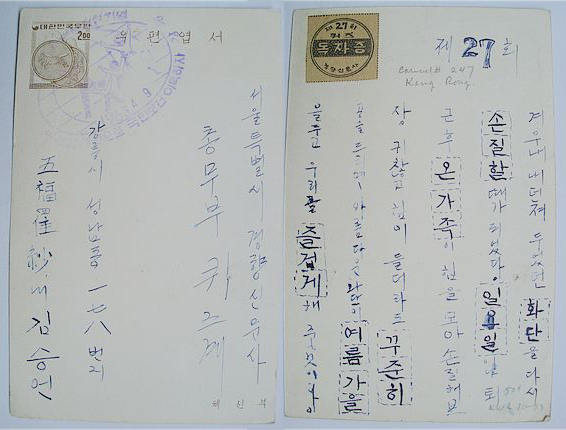 대한민국우편
2.00
우편엽서
서울특별시 경향신문사
총무부 퀴즈계
강릉시 성남동 一七八 번지
김승연
체신부
제27회
퀴즈
독자증
경향신문사
제 27 회
Hong Kong
겨우내 내던져 두었던 화단을 다시
손질할 때가 되었다 일요일날 퇴
근후 온가족이 힘을 모아 손질해보
자 귀찮고 힘이 들더라도 꾸준히
공을 들이면 아름다운 화단이 여름가을
을 두고 우리를 즐겁게 해 줄것이다